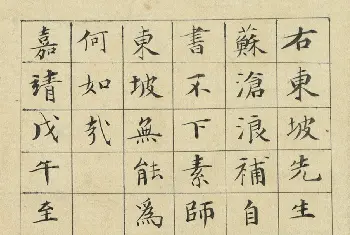 右東坡先生
蘇滄浪補自
書不下素師
東坡無能為
何如哉
嘉靖戊午至